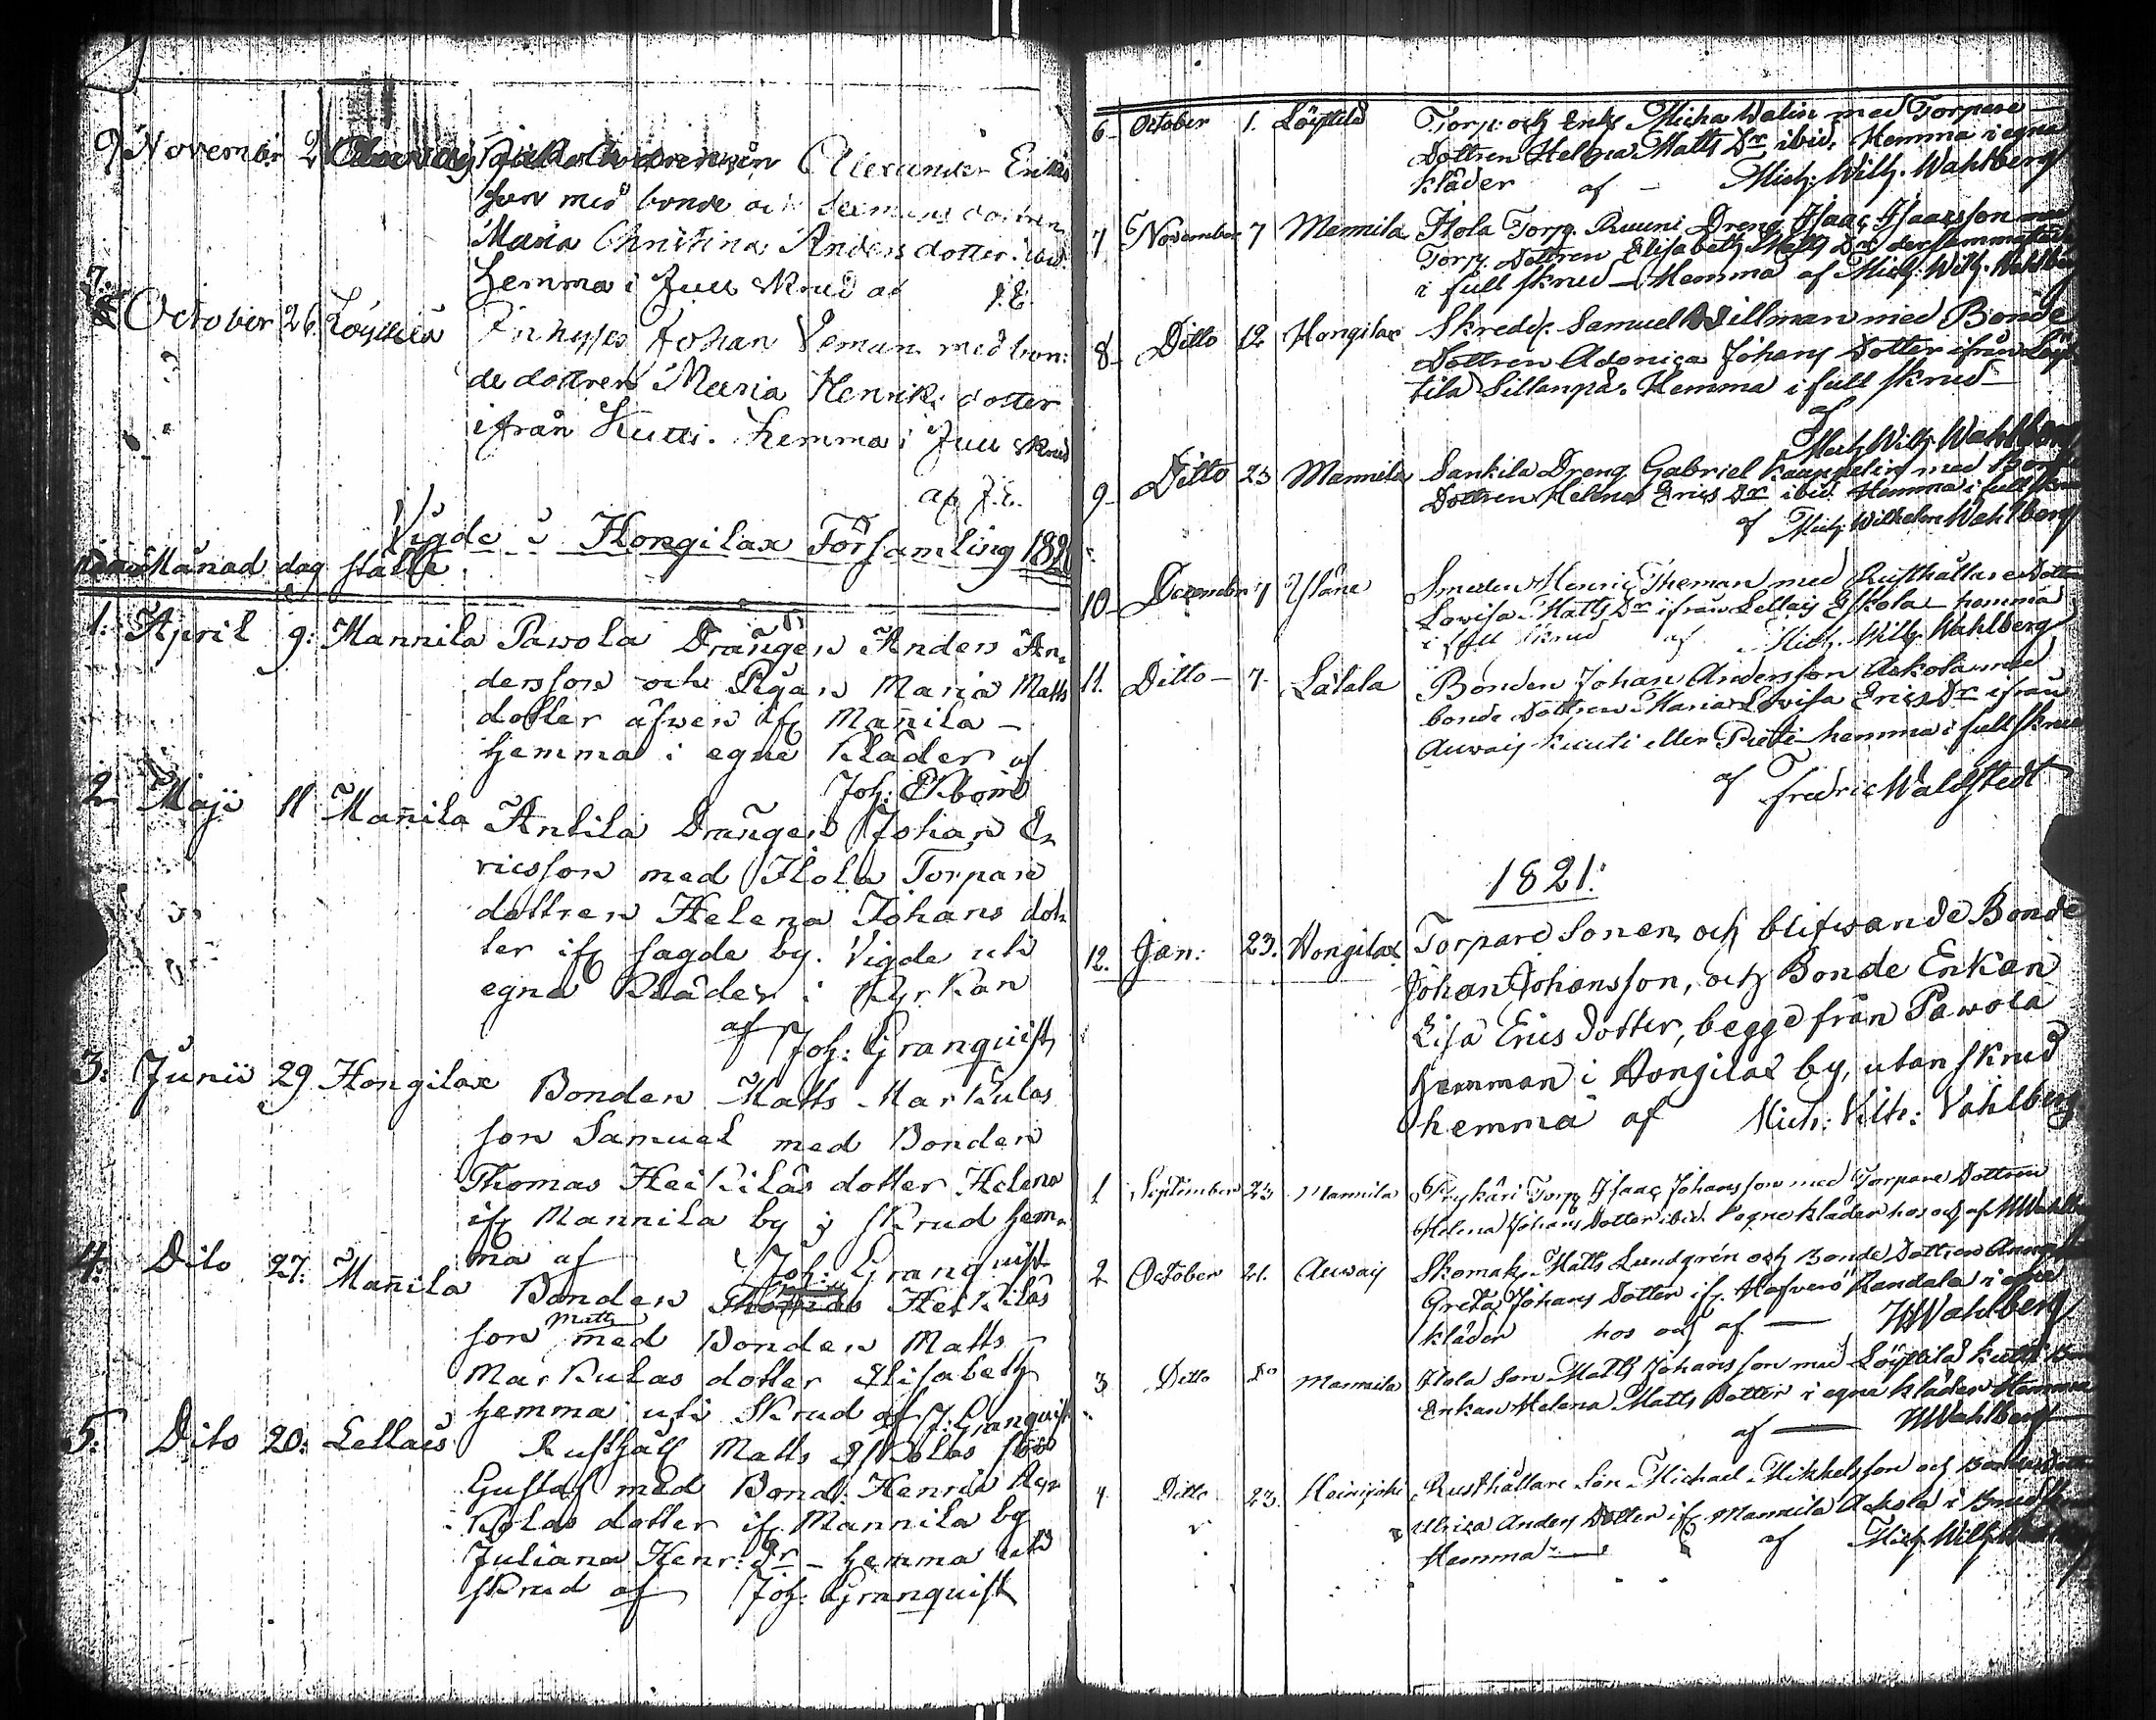 9 November 2 Alexander Ericks
son med bonde och dottren
Maria Christina Anders dotter ibid.
hemma i full skrud af J.E.
7. October 26. Löyttilä Inhyses Johan Leman med bon:
de dottren Maria Henriks dotter
ifrån Kutti. hemma i full skrud
af J.E.
Vigde i Hongilax Församling 1820
Månad dag ställe
1. April 9: Mannila Pawola Drängen Anders An,
dersson och Pigan Maria Matts
dotter äfwen ifr Mañila –
hemma i egna Kläder af
Joh: Ekbom
2. Maji 11 Mañila Anlila Drängen Johan E,
ricsson med Ilola Torpare
dottren Helena Johans dot,
ter ifr sagde by. Vigde uti
egna Kläder i Kyrkan
af Joh: Granquist
3: Junii 29 Hongilax Bonden Matts Markulas
son Samuel med Bonden
Thomas Heikkiläs dotter Helena
ifr Mannila by i skrud hem,
ma af Joh: Granquist
4: Dito 27: Mañila Bonden Heikkiläs
son Matts med Bonden Matts
Markulas dotter Elisabeth
hemma uti Skrud af J: Granquist
5: Dito 20: Lellais Rusthåll Matts Eskolas son
Gustaf med Bond: Henric
dotter ifr Mannila by
Juliana Henr: Dr – hemma uti
skrud af Joh: Granquist
6– October 1. Löyttilä Torp: och Enkl Micha Walin med Torpare
Dottren Helena Matts Dr ibid. Hemma i egna
kläder af – Mich: Wilh. Wahlberg
7 November 7 Mannila Ilola Torp. Ruuni Dreng Isaac Isaacsson med
Torp. Dottren Elisabeth Matts Dr dersammastädes
i full skrud – Hemma af Mich: Wilh. Wahlberg
8– Ditto 12 Hongilax Skredd: Samuel Willman med Bonde
Dottren Adonica Johans Dotter ifrån Löyt
tilä Sillanpä. Hemma i full skrud –
af
Mich Wilh. Wahlberg
9– Ditto 23 Mannila Sankila Dreng Gabriel med
Dottren Helena Erics Dr ibid. Hemma i full skrud
af Mich: Wilhelm Wahlberg
10– December 7 Yläne Smeden Henric Theman med Rusthållare Dottren
Lovisa Matts Dr ifrån Lellais Eskola – hemma
i full skrud af Mich. Wilh. Wahlberg
11. Ditto – 7. Lälala Bonden Johan Andersson Ackola med
bonde Dottren Maria Lovisa Erics Dr ifrån
Auwais Kuuti eller Preti hemma i full skrud
af Fredric Waldstedt
1821:
12. Jan: 23. Hongilax Torpare Sonen, och blifwande Bonde
Johan Johansson, och Bonde Enkan
Lisa Erics Dotter, begge från Pawola
hemman i Hongilax by, utan skrud
hemma af Mich: Vilh: Vahlberg
1 September 23 Mannila Torp Isaac Johansson med Torpare Dottren
Helena Johans Dotter ibid. i egna kläder hos och af MWahlberg
2 October 21. Auwais Skomak. Matts Lundgrén och Bonde Dottren Anna
Greta Johans Dotter ifr. Hafverö Raudala i egna
kläder hos och af — MWahlberg
3 Ditto Do Mannila Ilola Son Matts Johansson med Löyttilä Kutti
Enkan Helena Matts Dotter i egna kläder Hemma
af — MWahlberg
4 Ditto 23. Heinijoki Rusthållare Son Michael Mikkelsson och Bonde Dottren
Ulrica Anders Dotter ifr Mannila Ackola i Brudskrud
Hemma — af Mich Wilh